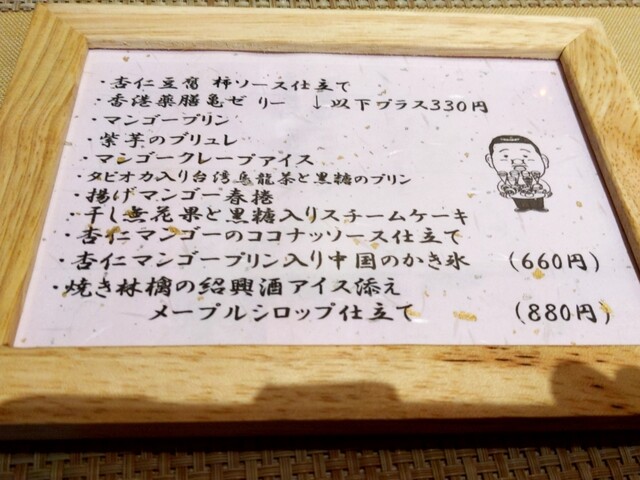 ・杏仁豆腐 柿ソース仕立て
・香港薬膳亀ゼリー ↓以下プラス330円
・マンゴープリン
・紫芋のブリュレ
・マンゴークレープアイス
・タピオカ入り台湾烏龍茶と黒糖のプリン
・揚げマンゴー春捲
・干し無花果と黒糖入りスチームケーキ
・杏仁マンゴーのココナッツソース仕立て
・杏仁マンゴープリン入り中国のかき氷 (660円)
・焼き林檎の紹興酒アイス添え
メープルシロップ仕立て (880円)